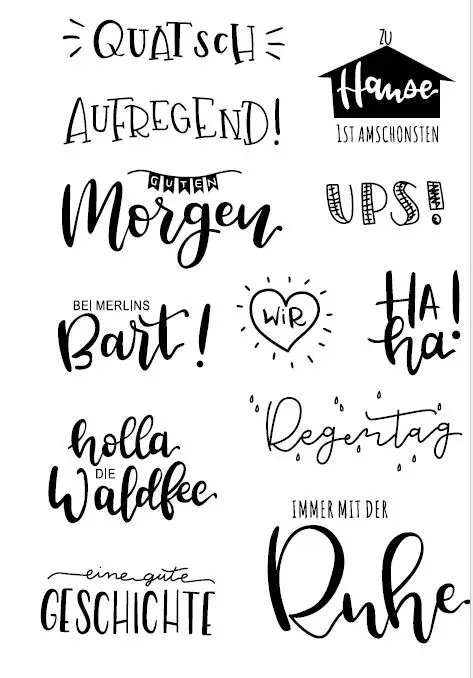 QUATSCH
ZU
Hause
IST AM SCHONSTEN
AUFREGEND!
GUTEN
Morgen
UPS!
BEI MERLINS
Bart!
WiR
HA!
ha!
Regentag
holla
DIE
Waldfee
IMMER MIT DER
Ruhe
eine gute
GESCHICHTE